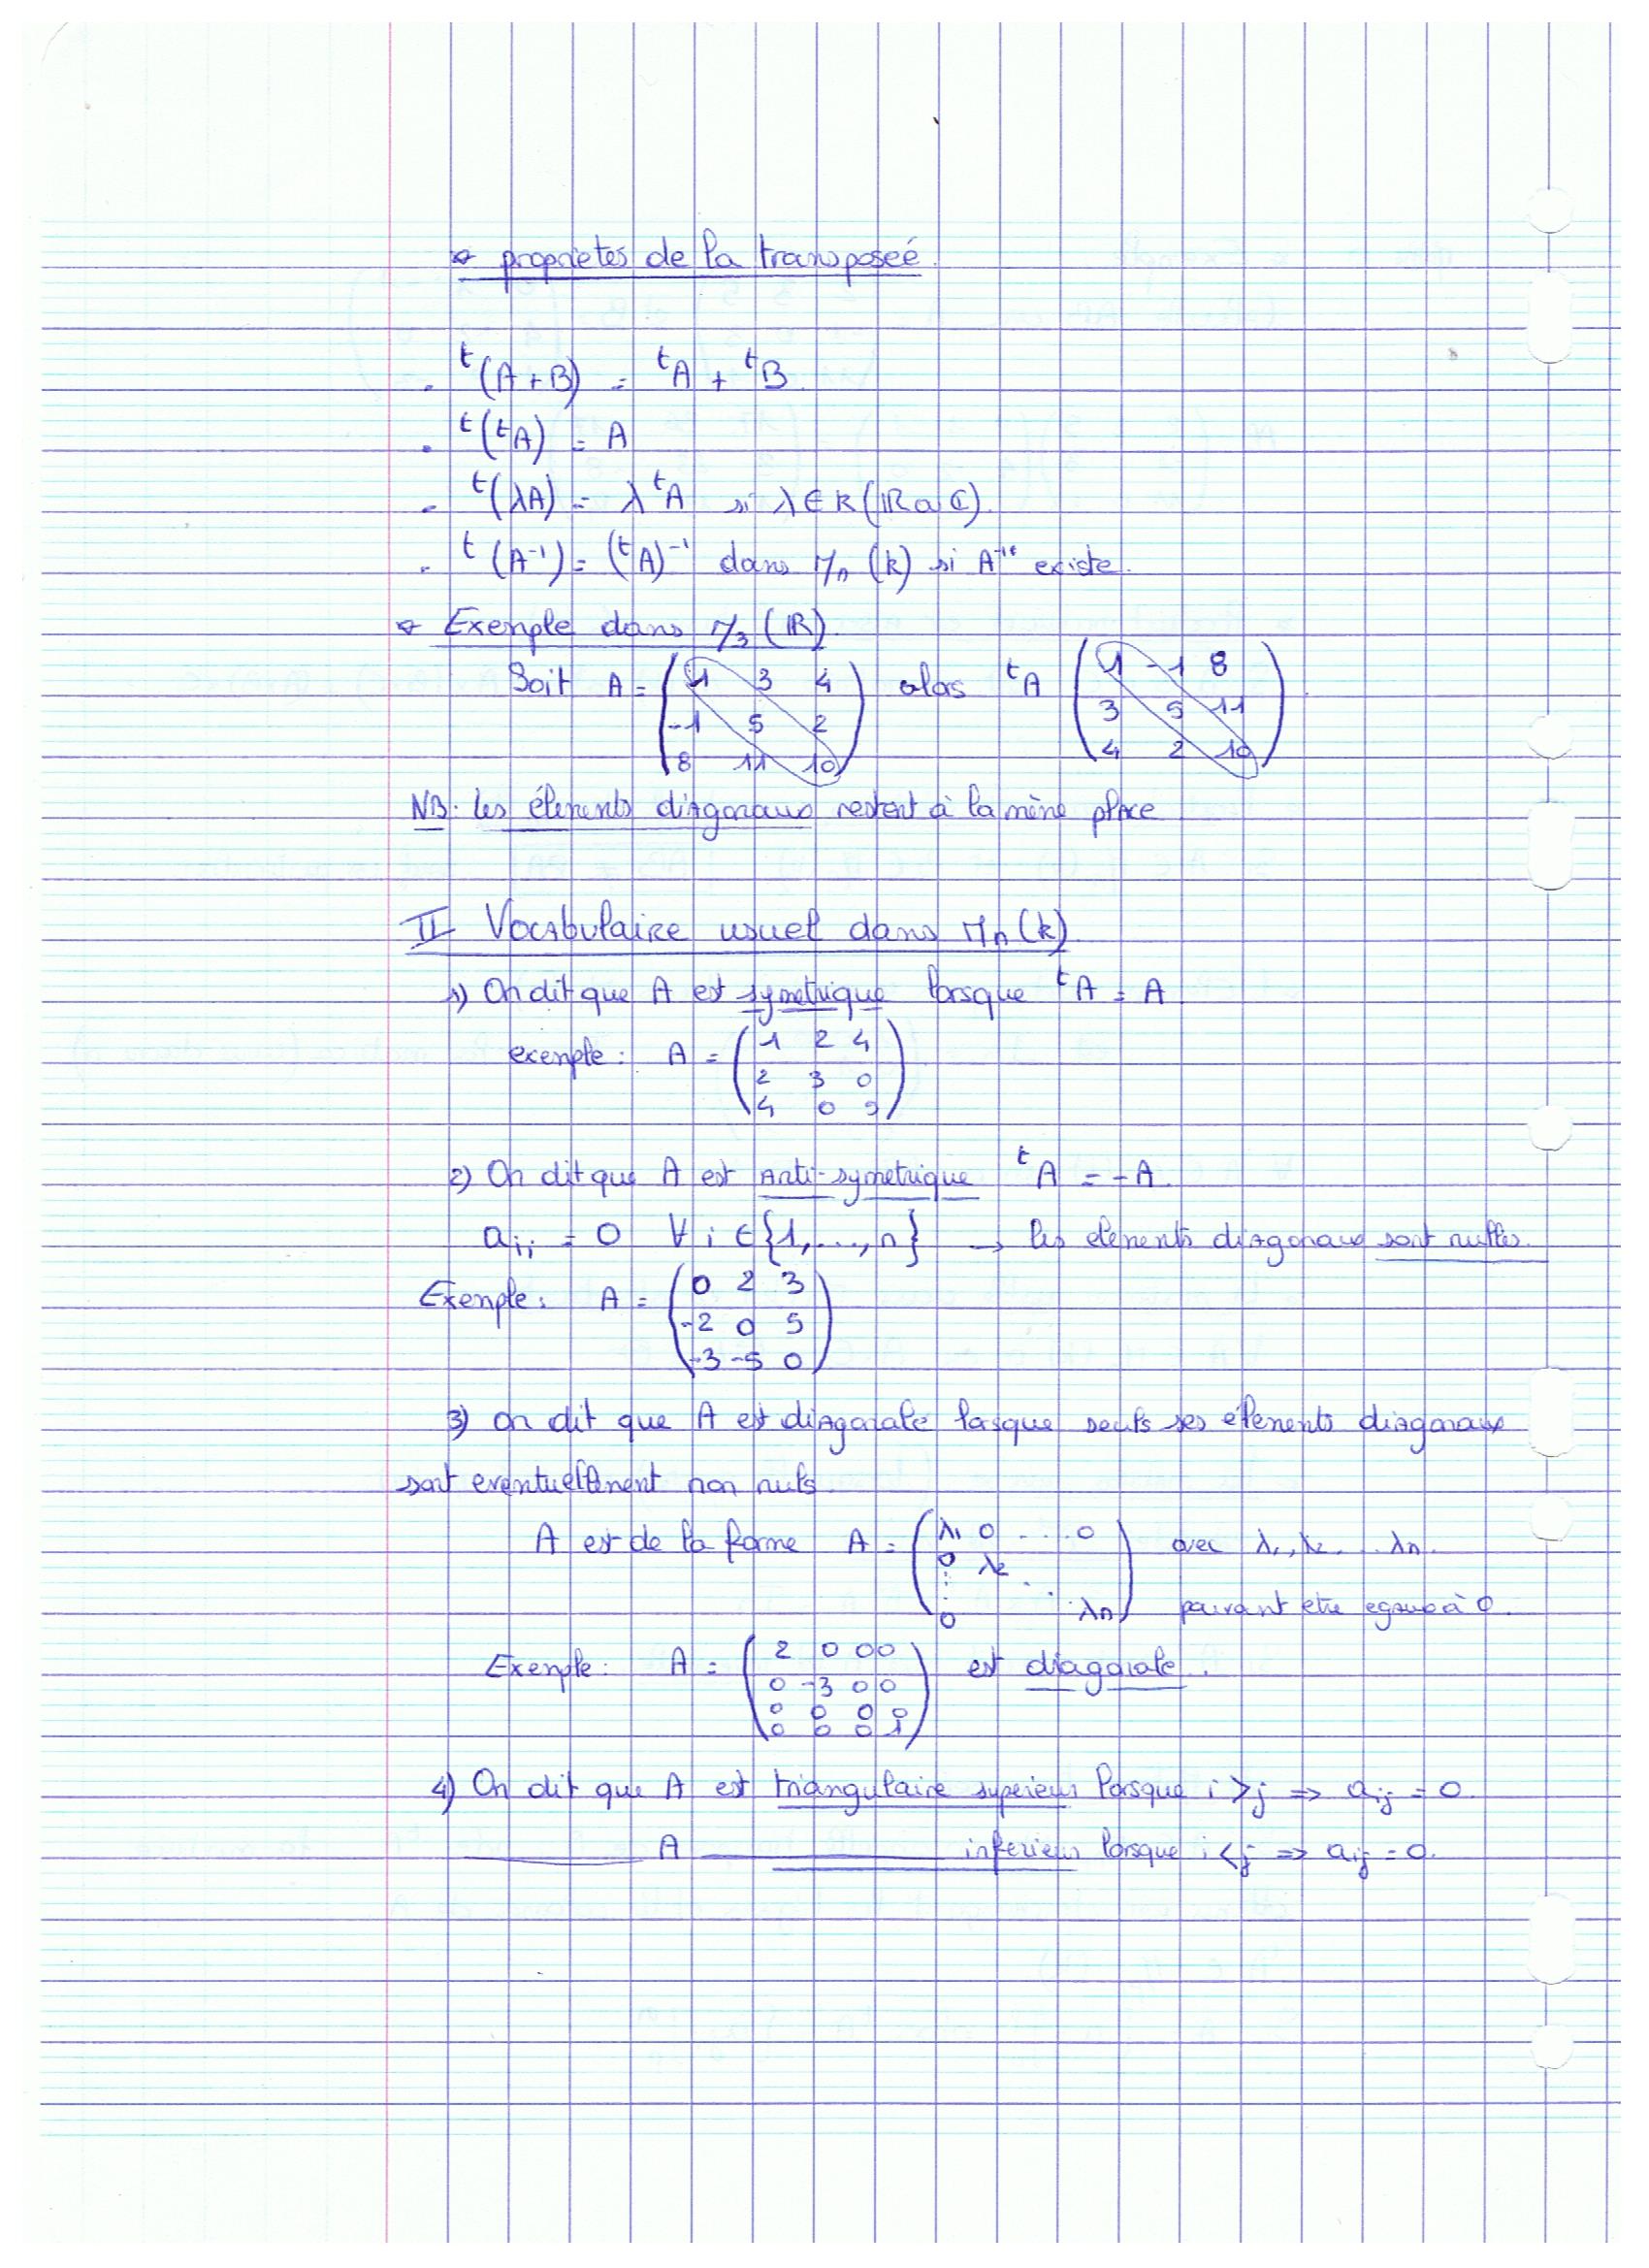 * proprietes de la transposeé.
. ᵗ(A+B) = ᵗA + ᵗB.
. ᵗ(ᵗA) = A
. ᵗ(λA) = λ ᵗA si λ ∈ K (ℝ ou ℂ).
. ᵗ(A⁻¹) = (ᵗA)⁻¹ dans Mn (k) si A⁻¹ existe.
* Exemple dans M3 (ℝ).
Soit A = (1 3 4 alors ᵗA (1 -1 8
-1 5 2 3 5 11
8 11 10) 4 2 10)
NB: les élements diagonaux restent à la même place
II Vocabulaire usuel dans Mn (k)
1) On dit que A est symetrique lorsque ᵗA = A
exemple: A = (1 2 4
2 3 0
4 0 5)
2) On dit que A est Anti-symetrique ᵗA = -A.
aii = 0 ∀ i ∈ {1,...,n} → les elements diagonaux sont nulles.
Exemple: A = (0 2 3
-2 0 5
-3 -5 0)
3) on dit que A est diagonale lorsque seuls ses elements diagonaux
sont eventuellement non nuls.
A est de la forme A = (λ1 0 ... 0 avec λ1, λ2 ... λn.
0 λ2
⋮ ⋱
0 λn) pouvant etre egaux à 0.
Exemple: A = (2 0 0 0 est diagonale.
0 -3 0 0
0 0 0 0
0 0 0 1)
4) On dit que A est triangulaire superieur lorsque i > j => aij = 0.
——— A ——— inferieur lorsque i < j => aij = 0.